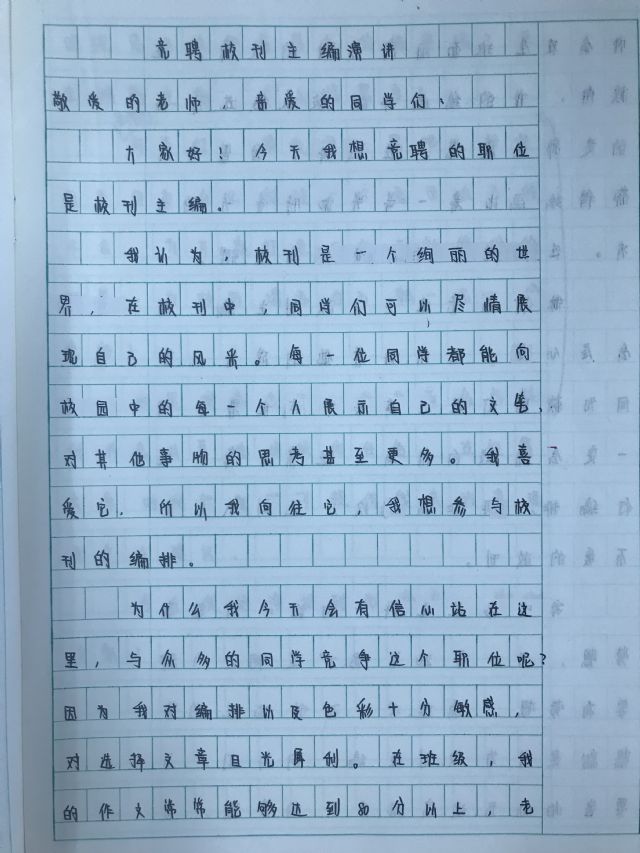 竞聘校刊主编演讲
敬爱的老师、亲爱的同学们：
大家好！今天我想竞聘的职位
是校刊主编。
我认为，校刊是一个绚丽的世
界，在校刊中，同学们可以尽情展
现自己的风采。每一位同学都能向
校园中的每一个人展示自己的文笔、
对其他事物的思考甚至更多。我喜
爱它，所以我向往它，我想参与校
刊的编排。
为什么我今天会有信心站在这
里，与众多的同学竞争这个职位呢？
因为我对编排以及色彩十分敏感，
对选择文章目光犀利。在班级，我
的作文常常能够达到80分以上，老